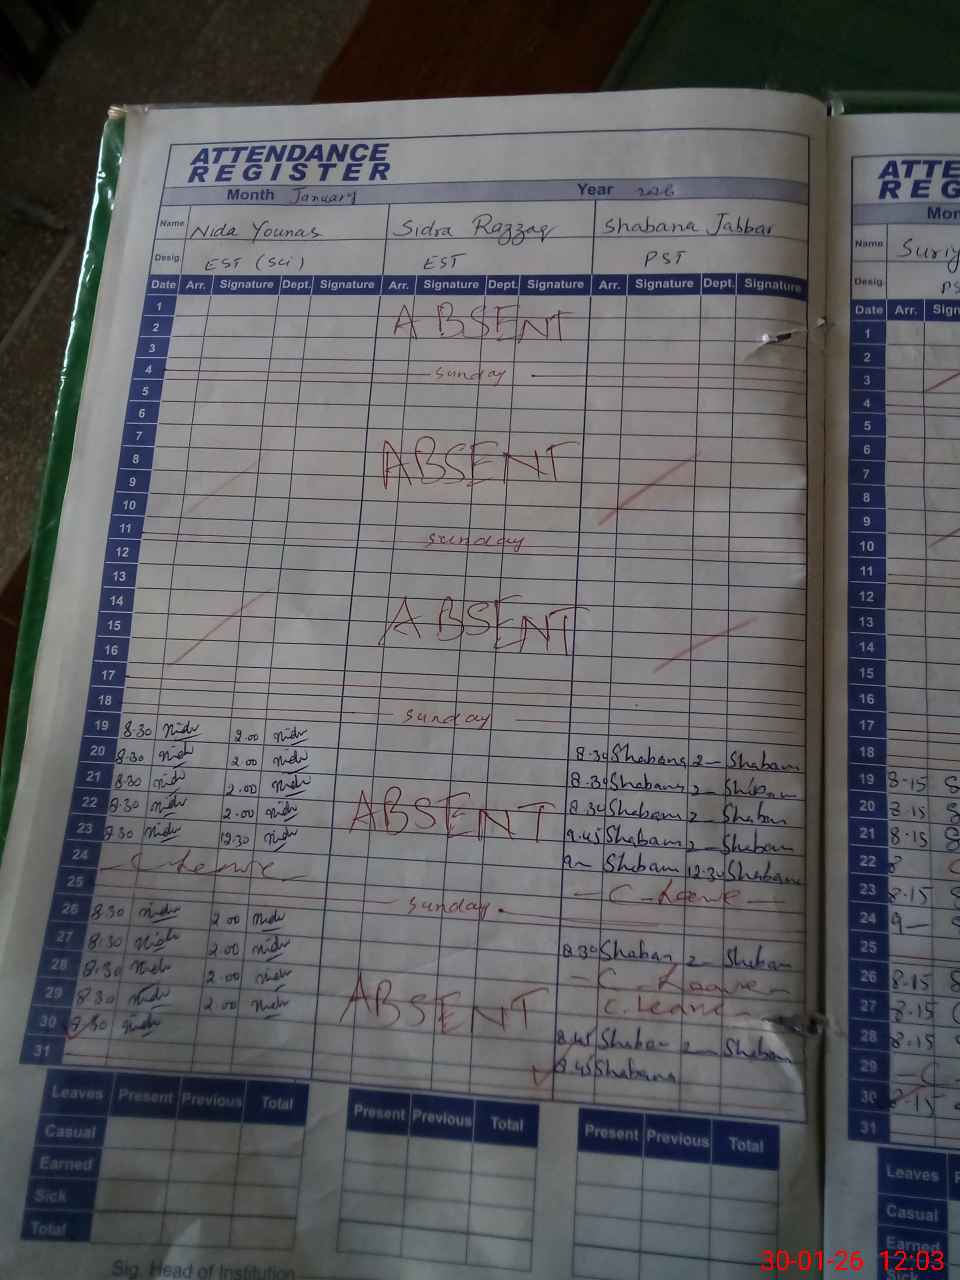 ATTENDANCE REGISTER
Month January Year 2026
Name Nida Younas Sidra Razzaq Shabana Jabbar
Desig. EST (Sci) EST PST
Date Arr. Signature Dept. Signature Arr. Signature Dept. Signature Arr. Signature Dept. Signature
1
2 ABSENT
3
4 Sunday
5
6
7
8 ABSENT
9
10
11 Sunday
12
13
14
15 ABSENT
16
17
18 Sunday
19 8.30 Nida 2.00 Nida 8.30 Shabana 2 Shabana
20 8.30 Nida 2.00 Nida 8.30 Shabana 2 Shabana
21 8.30 Nida 2.00 Nida 8.30 Shabana 2 Shabana
22 8.30 Nida 2.00 Nida ABSENT 9.45 Shabana 2 Shabana
23 8.30 Nida 12.30 Nida 9 Shabana 12.30 Shabana
24 C Leave C Leave
25 Sunday
26 8.30 Nida 2.00 Nida 8.30 Shabana 2 Shabana
27 8.30 Nida 2.00 Nida C Leave
28 8.30 Nida 2.00 Nida ABSENT C. Leave
29 8.30 Nida 2.00 Nida 8.45 Shabana 2 Shabana
30 8.30 Nida 8.45 Shabana
31
Leaves Present Previous Total Present Previous Total Present Previous Total
Casual
Earned
Sick
Total
Sig. Head of Institution
ATTE
REG
Mon
Name Suriy
Desig. PS
Date Arr. Sign
1
2
3
4
5
6
7
8
9
10
11
12
13
14
15
16
17
18
19 8.15 S
20 8.15 S
21 8.15 S
22 8
23 8.15 S
24 9
25
26 8.15 S
27 8.15
28 8.15
29 C
30 8.15
31
Leaves P
Casual
Earned
Sick
30-01-26 12:03